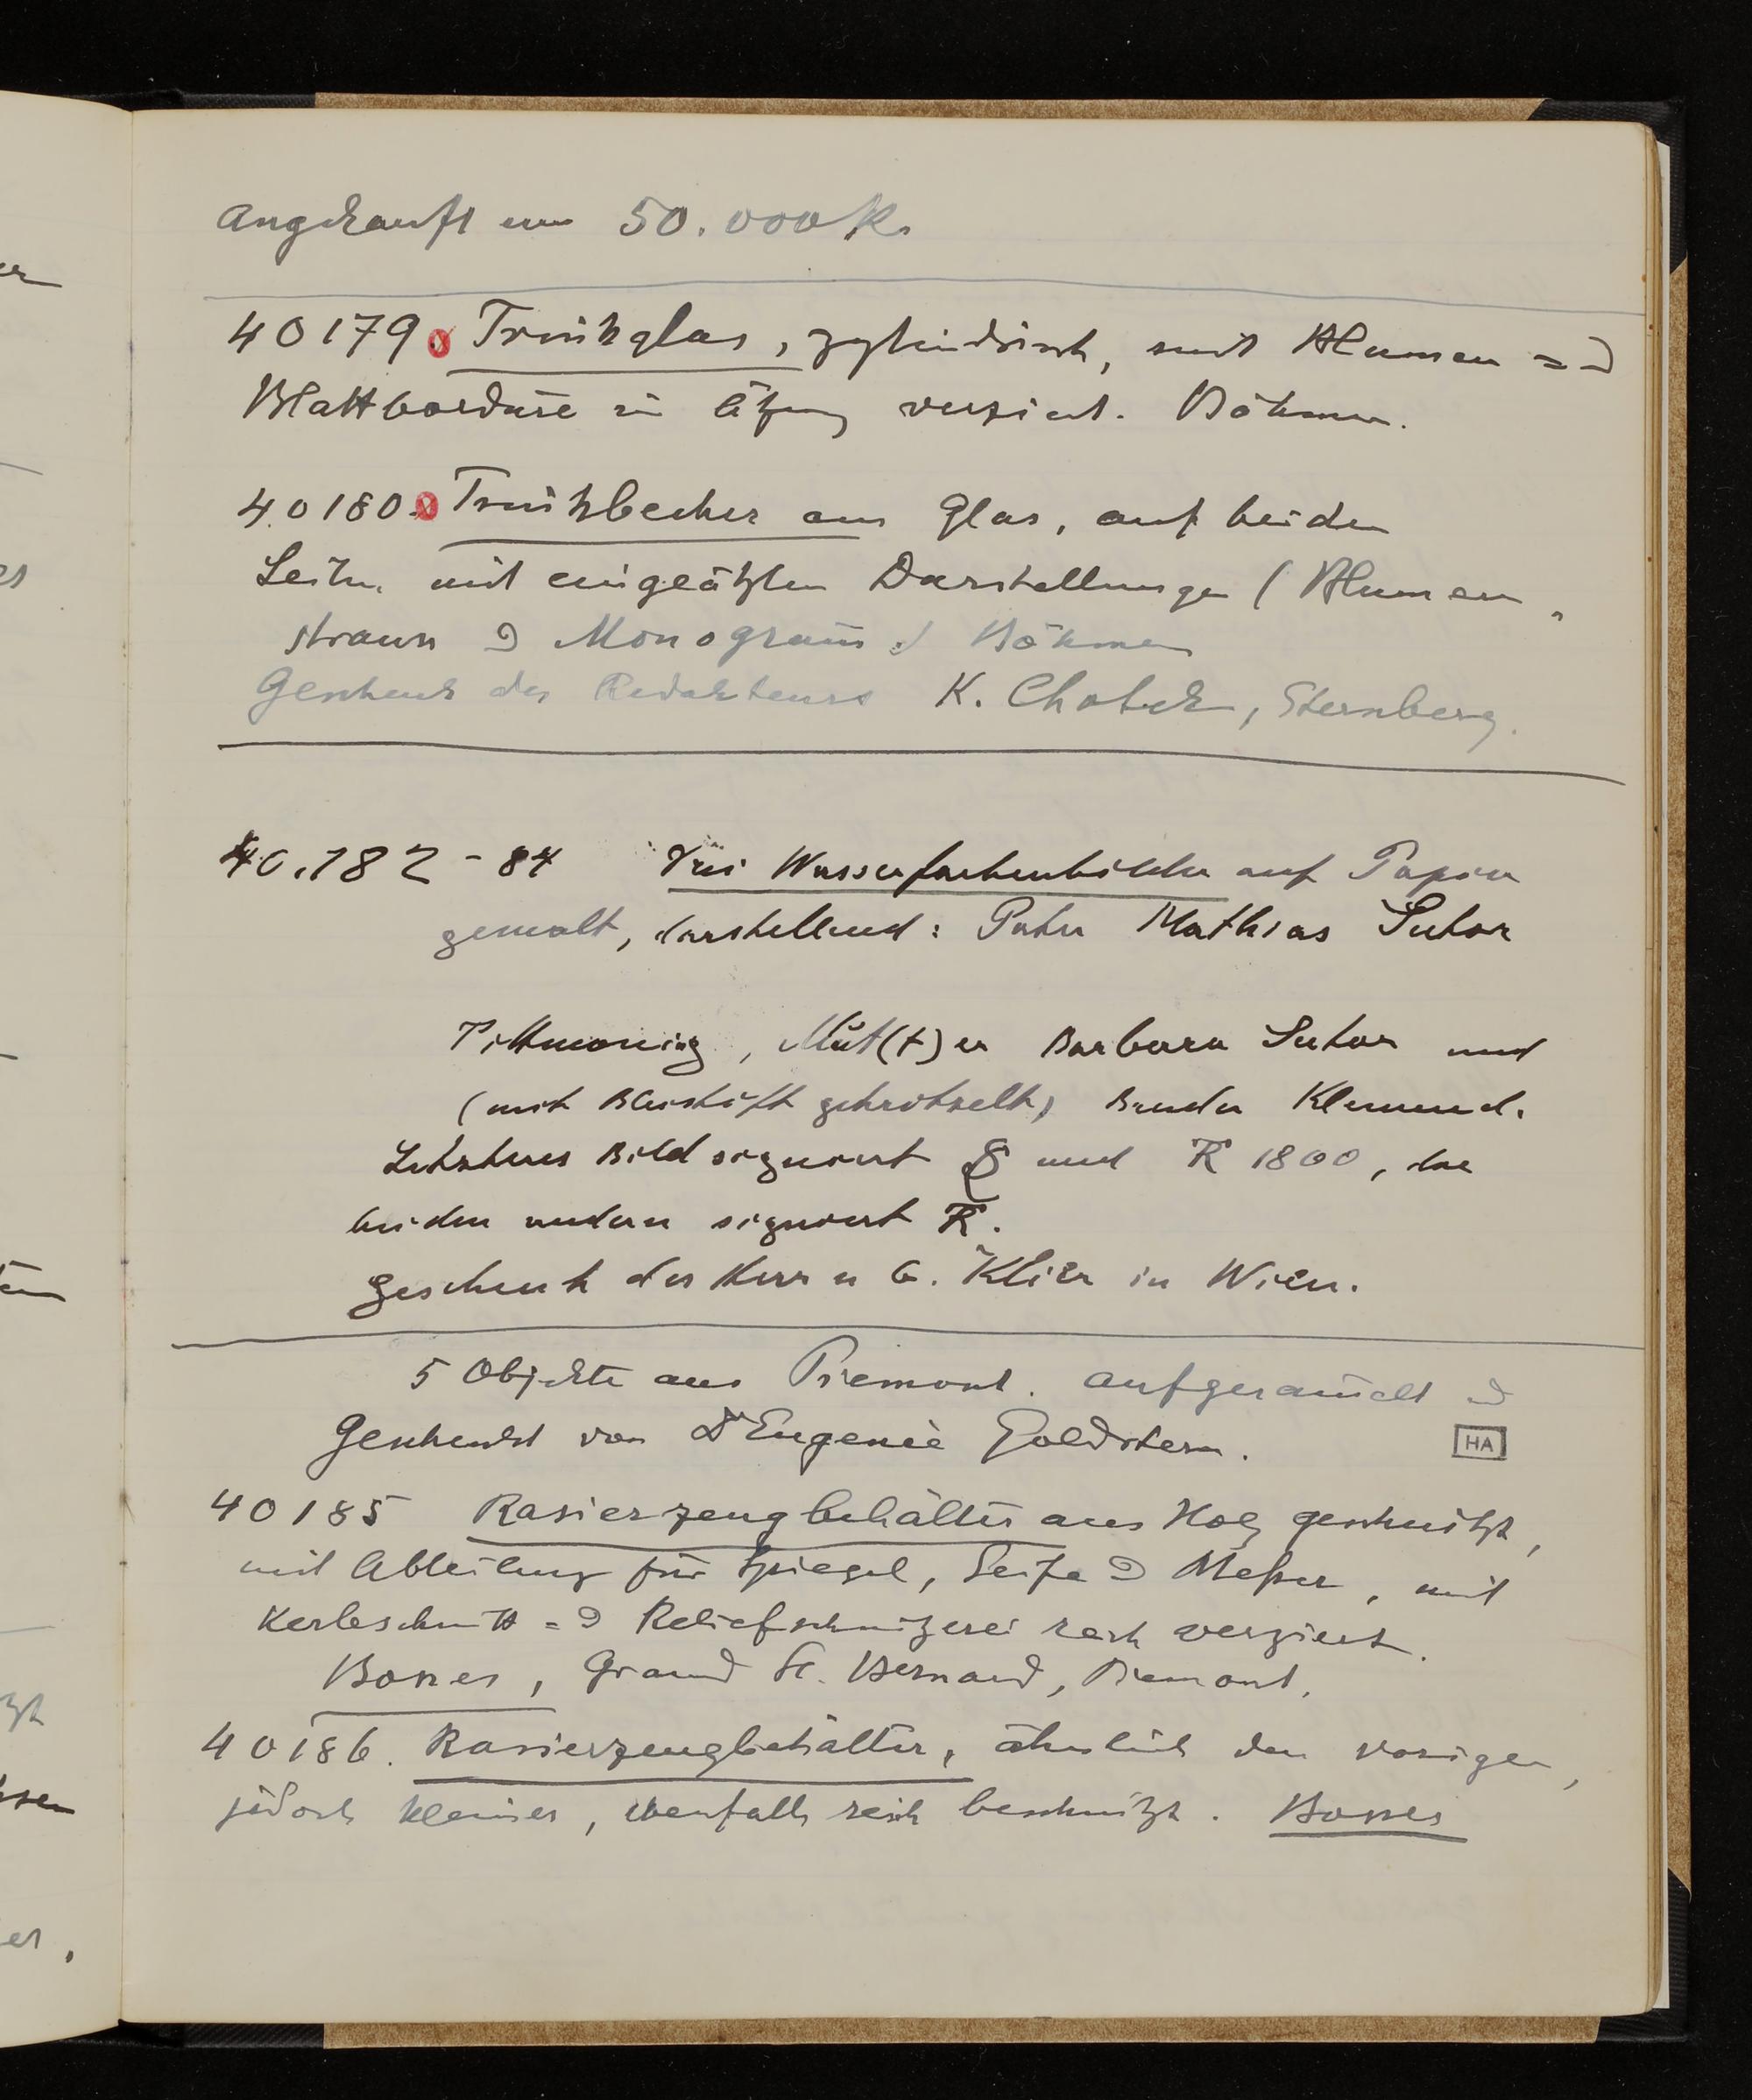 Angekauft um 50.000 K.
40179. Trinkglas, zylindrisch, mit Blumen = &
Blattbordüre in Ätzung verziert. Böhmen.
40180. Trinkbecher aus Glas, auf beiden
Seiten mit eingeätzten Darstellungen (Blumen„
strauss & Monogram̄.) Böhmen
Geschenk des Redakteurs K. Chotek, Sternberg.
40.182 - 84 Drei Wasserfarbenbilder auf Papier
gemalt, darstellend: Pater Mathias Sutor
Tittmoning, Mut(t)er Barbara Sutor und
(mit Bleistift gekritzelt) Bruder Klemend.
Letzteres Bild signiert und K 1800, die
beiden andern signiert K.
Geschenk des Herrn G. Klier in Wien.
5 Objekte aus Piemont. aufgesam̄elt &
Geschenkt von Dr Eugenie Goldstern.
HA
40185 Rasierzeugbehälter aus Holz geschnitzt,
mit Abteilung für Spiegel, Seife & Meßer, mit
Kerbschnitt = & Reliefschnitzerei reich verziert.
Bosses, Grand St. Bernard, Piemont.
40186. Rasierzeugbehälter, ähnlich dem vorigen,
jedoch kleiner, ebenfalls reich beschnitzt. Bosses